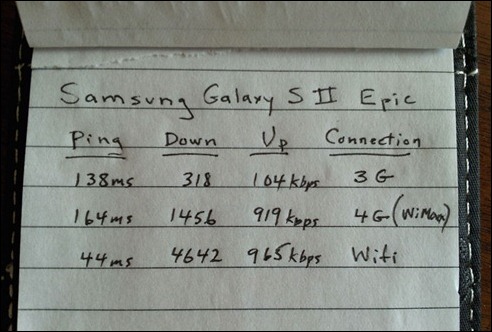 Samsung Galaxy S II Epic
Ping Down Up Connection
138ms 318 104kbps 3G
164ms 1456 919kbps 4G (WiMax)
44ms 4642 965kbps Wifi